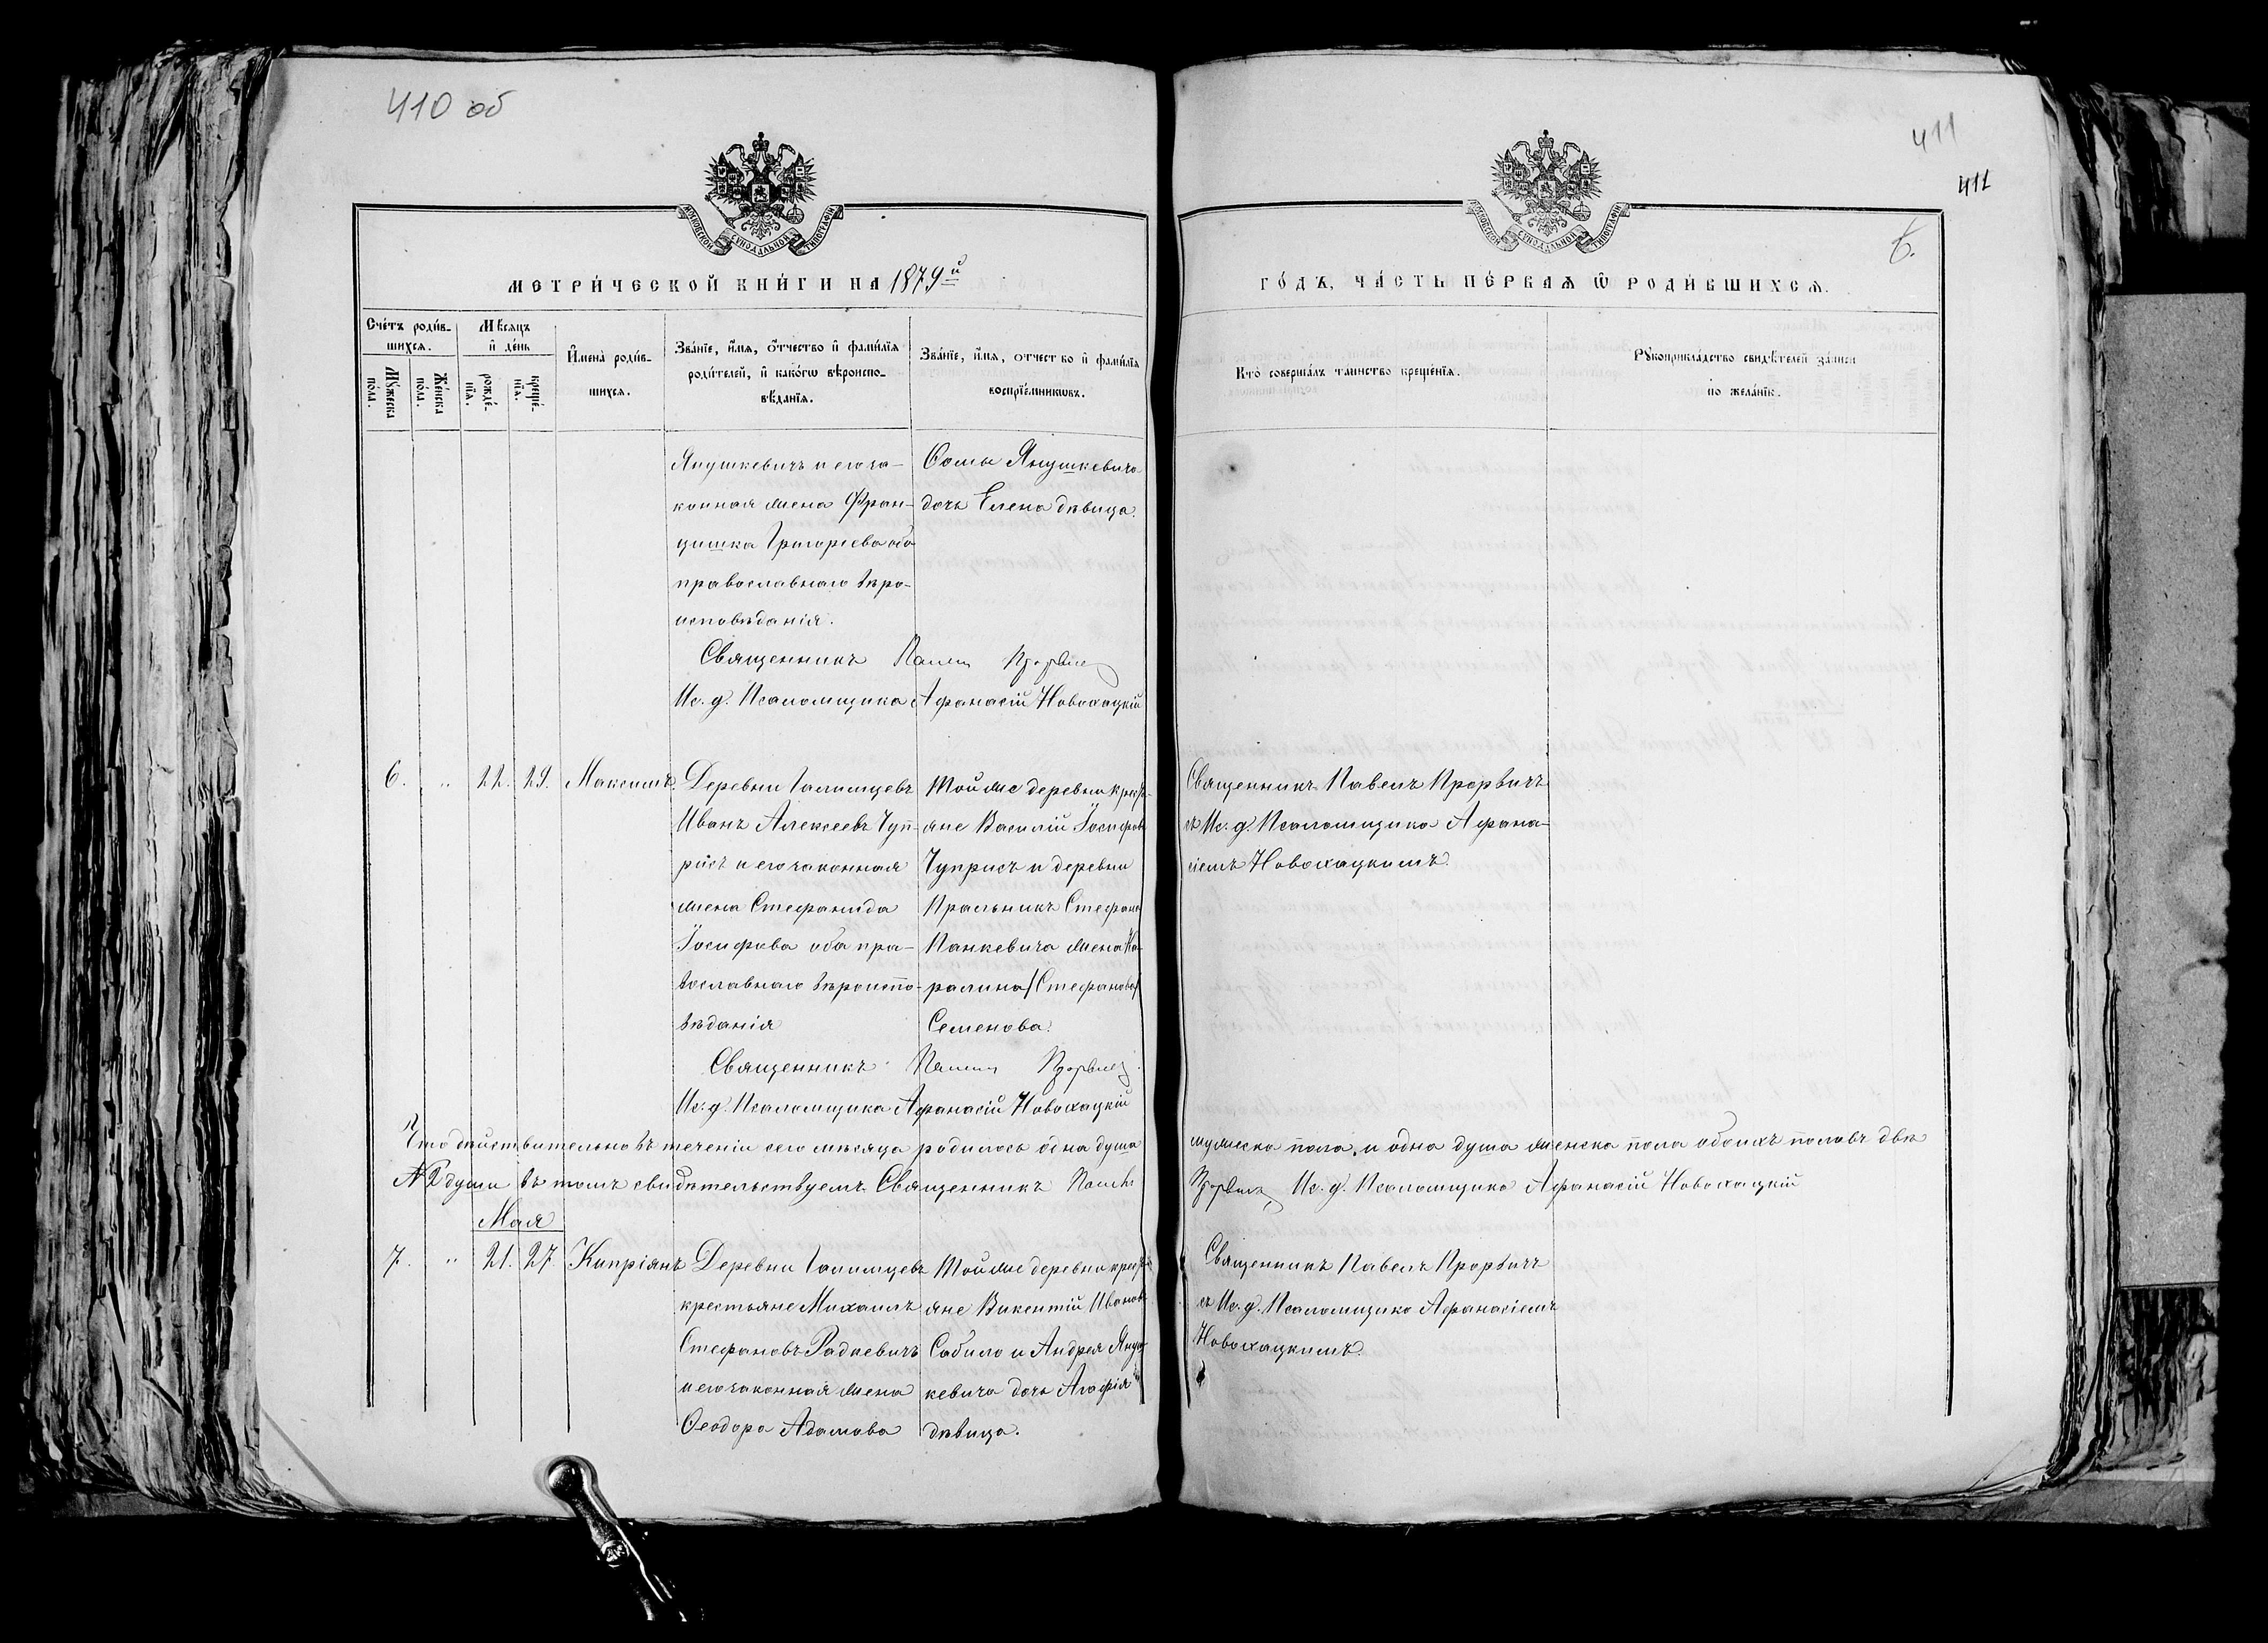 410 об
411
411
6.
МОСКОВСКОЙ СУНОДАЛЬНОЙ ТИПОГРАФІИ
МОСКОВСКОЙ СУНОДАЛЬНОЙ ТИПОГРАФІИ
МЕТРИ́ЧЕСКОЙ КНИ́ГИ НА 1879й
ГО́ДЪ, ЧА́СТЬ ПЕ́РВАѦ Ѿ РОДИ́ВШИХСѦ.
Сче́тъ роди́в-
шихсѧ.
Мꙋ́жеска по́ла.
Же́нска по́ла.
Мѣ́сѧцъ
и҆ де́нь
рожде́-
нїѧ.
креще́-
нїѧ.
И҆мена̀ роди́в-
шихсѧ.
Зва́нїе, и҆́мѧ, ѻ҆́тчество и҆ фами́лїѧ
роди́телей, и҆ како́гѡ вѣроиспо-
вѣ́данїѧ.
Зва́нїе, и҆́мѧ, ѻ҆тчество и҆ фами́лїѧ
воспрїе́мникѡвъ.
Кто̀ соверша́лъ таинство креще́нїѧ.
Рꙋкоприкла́дство свидѣ́телей за́писи
по жела́нїю.
Янушкевичъ и его за-
конная жена Фран-
цишка Григорьева оба
православнаго вѣро-
исповѣданія.
Ѳомы Янушкевича
дочь Елена дѣвица.
Священникъ Павелъ Прорвичъ
Ис. д. Псаломщика Афанасій Новохацкій
6. „ 22. 29. Максимъ.
Деревни Галимцевъ
Иванъ Алексеевъ Чуп-
рисъ и его законная
жена Стефанида
Іосифова оба пра-
вославнаго вѣроиспо-
вѣданія
Той же деревни кресть-
яне Василій Іосифовъ
Чуприсъ и деревни
Пральникъ Стефана
Панкевича жена Ка-
ролина /Стефанова/
Семенова.
Священникъ Павелъ Прорвичъ
съ Ис. д. Псаломщика Афана-
сіемъ Новохацкимъ.
Священникъ Павелъ Прорвичъ
Ис. д. Псаломщика Афанасій Новохацкій
Что дѣйствительно въ теченіи сего мѣсяца родилось одна душа мужеска пола, и одна душа женска пола обоихъ половъ двѣ
№ 2 души въ томъ свидѣтельствуемъ Священникъ Павелъ Прорвичъ Ис. д. Псаломщика Афанасій Новохацкій
Мая
7. „ 21. 27 Кипріянъ
Деревни Галимцевъ
крестьяне Михаилъ
Стефановъ Радкевичъ
и его законная жена
Ѳеодора Адамова
Той же деревни кресть-
яне Викентій Ивановъ
Сабило и Андрея Януш-
кевича дочь Агафія
дѣвица.
Священникъ Павелъ Прорвичъ
съ Ис. д. Псаломщика Афанасіемъ
Новохацкимъ.